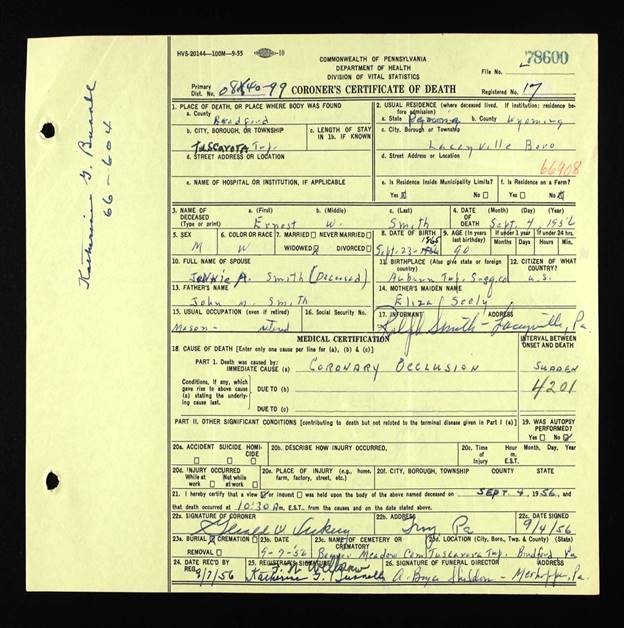 HVS-20144—100M—9-55
COMMONWEALTH OF PENNSYLVANIA
DEPARTMENT OF HEALTH
DIVISION OF VITAL STATISTICS
File No. 78600
Primary Dist. No.
CORONER'S CERTIFICATE OF DEATH
Registered No. 17
1. PLACE OF DEATH, OR PLACE WHERE BODY WAS FOUND
a. County Bradford
2. USUAL RESIDENCE (where deceased lived. If institution: residence before admission)
a. State Penna b. County Wyoming
b. CITY, BOROUGH, OR TOWNSHIP
Tuscarora Twp.
c. LENGTH OF STAY IN 1b. IF KNOWN
c. City, Borough or Township
Laceyville Boro
d. STREET ADDRESS OR LOCATION
d. Street Address or Location
66908
e. NAME OF HOSPITAL OR INSTITUTION, IF APPLICABLE
e. Is Residence Inside Municipality Limits?
f. Is Residence on a Farm?
Yes No
Yes No
3. NAME OF DECEASED (Type or print)
a. (First) b. (Middle) c. (Last)
Ernest W. Smith
4. DATE OF DEATH (Month) (Day) (Year)
Sept. 4 1956
5. SEX
M
6. COLOR OR RACE
W
7. MARRIED NEVER MARRIED
WIDOWED DIVORCED
8. DATE OF BIRTH
Sept. 23 - 1865
9. AGE (In years last birthday)
90
If under 1 year Months Days
If under 24 hrs. Hours Min.
10. FULL NAME OF SPOUSE
Jennie A. Smith (Deceased)
11. BIRTHPLACE (Also give state or foreign country)
Auburn Twp. Susq. Co
12. CITIZEN OF WHAT COUNTRY?
U.S.
13. FATHER'S NAME
John M. Smith
14. MOTHER'S MAIDEN NAME
Eliza Seely
15. USUAL OCCUPATION (even if retired)
Mason - retired
16. Social Security No.
17. INFORMANT ADDRESS
Ralph Smith - Laceyville, Pa.
MEDICAL CERTIFICATION
INTERVAL BETWEEN ONSET AND DEATH
18 CAUSE OF DEATH [Enter only one cause per line for (a), (b) & (c)]
PART I. Death was caused by:
IMMEDIATE CAUSE (a) CORONARY OCCLUSION
SUDDEN
Conditions, if any, which gave rise to above cause (a) stating the underlying cause last.
DUE TO (b)
4201
DUE TO (c)
PART II. OTHER SIGNIFICANT CONDITIONS [contributing to death but not related to the terminal disease given in Part I (a)]
19. WAS AUTOPSY PERFORMED?
Yes No
20a. ACCIDENT SUICIDE HOMICIDE
20b. DESCRIBE HOW INJURY OCCURRED.
20c. Time of Injury
Hour m. E.S.T.
Month, Day, Year
20d. INJURY OCCURRED
While at work
Not While at work
20e. PLACE OF INJURY (e.g., home, farm, factory, street, etc.)
20f. CITY, BOROUGH, TOWNSHIP COUNTY STATE
21. I hereby certify that a view or inquest was held upon the body of the above named deceased on SEPT. 4 1956, and
that death occurred at 10:30 A m. E.S.T., from the causes and on the date stated above.
22a. SIGNATURE OF CORONER
22b. ADDRESS
Troy Pa
22c. DATE SIGNED
9/4/56
23a. BURIAL CREMATION
REMOVAL
23b. DATE
9-7-56
23c. NAME OF CEMETERY OR CREMATORY
Beaver Meadow Cem
23d. LOCATION (City, Boro, Twp. & County) (State)
Tuscarora Twp. Bradford Pa
24. DATE REC'D BY REG.
9/7/56
25. REGISTRAR'S SIGNATURE
26. SIGNATURE OF FUNERAL DIRECTOR ADDRESS
A. Bryce Sheldon - Meshoppen, Pa.
66-604